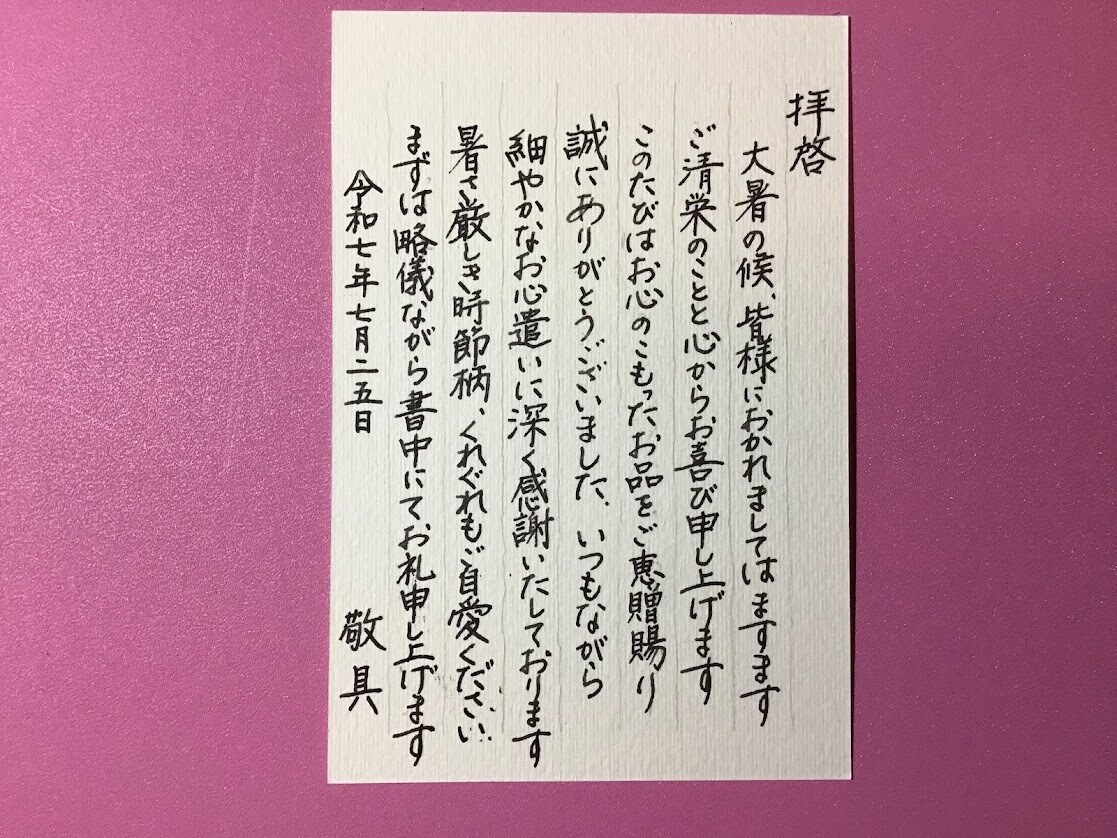 拝啓
大暑の候、皆様におかれましてはますます
ご清栄のことと心からお喜び申し上げます
このたびはお心のこもったお品をご恵贈賜り
誠にありがとうございました、いつもながら
細やかなお心遣いに深く感謝いたしております
暑さ厳しき時節柄、くれぐれもご自愛ください
まずは略儀ながら書中にてお礼申し上げます
令和七年七月二五日
敬具